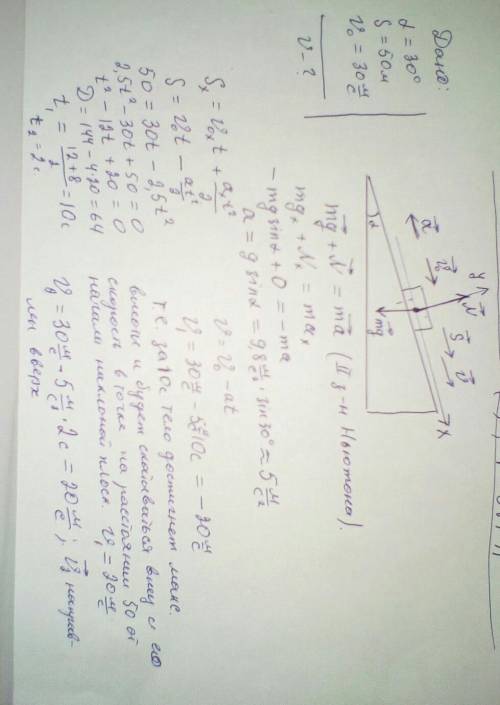 Дано:
α = 30°
S = 50м
v₀ = 30 м/с
v - ?
y
N⃗
v⃗₀
S⃗
v⃗
a⃗
x
α
mg⃗
mg⃗ + N⃗ = ma⃗ (II з-н Ньютона).
mgₓ + Nₓ = maₓ
- mg sinα + 0 = - ma
a = g sinα = 9,8 м/с² · sin 30° ≈ 5 м/с²
Sₓ = v₀ₓt + aₓt²/2
S = v₀t - at²/2
50 = 30t - 2,5t²
2,5t² - 30t + 50 = 0
t² - 12t + 20 = 0
D = 144 - 4·20 = 64
t₁ = (12+8)/2 = 10с
t₂ = 2с.
v = v₀ - at
v₁ = 30 м/с - 5 м/с² · 10с = - 20 м/с
т.е. за 10с тело достигнет макс.
высоты и будет скатываться вниз и его
скорость в точке на расстоянии 50 от
начала наклонной плоск. v₁ = 20 м/с
v₂ = 30 м/с - 5 м/с² · 2с = 20 м/с ; v⃗₂ направ-
лен вверх